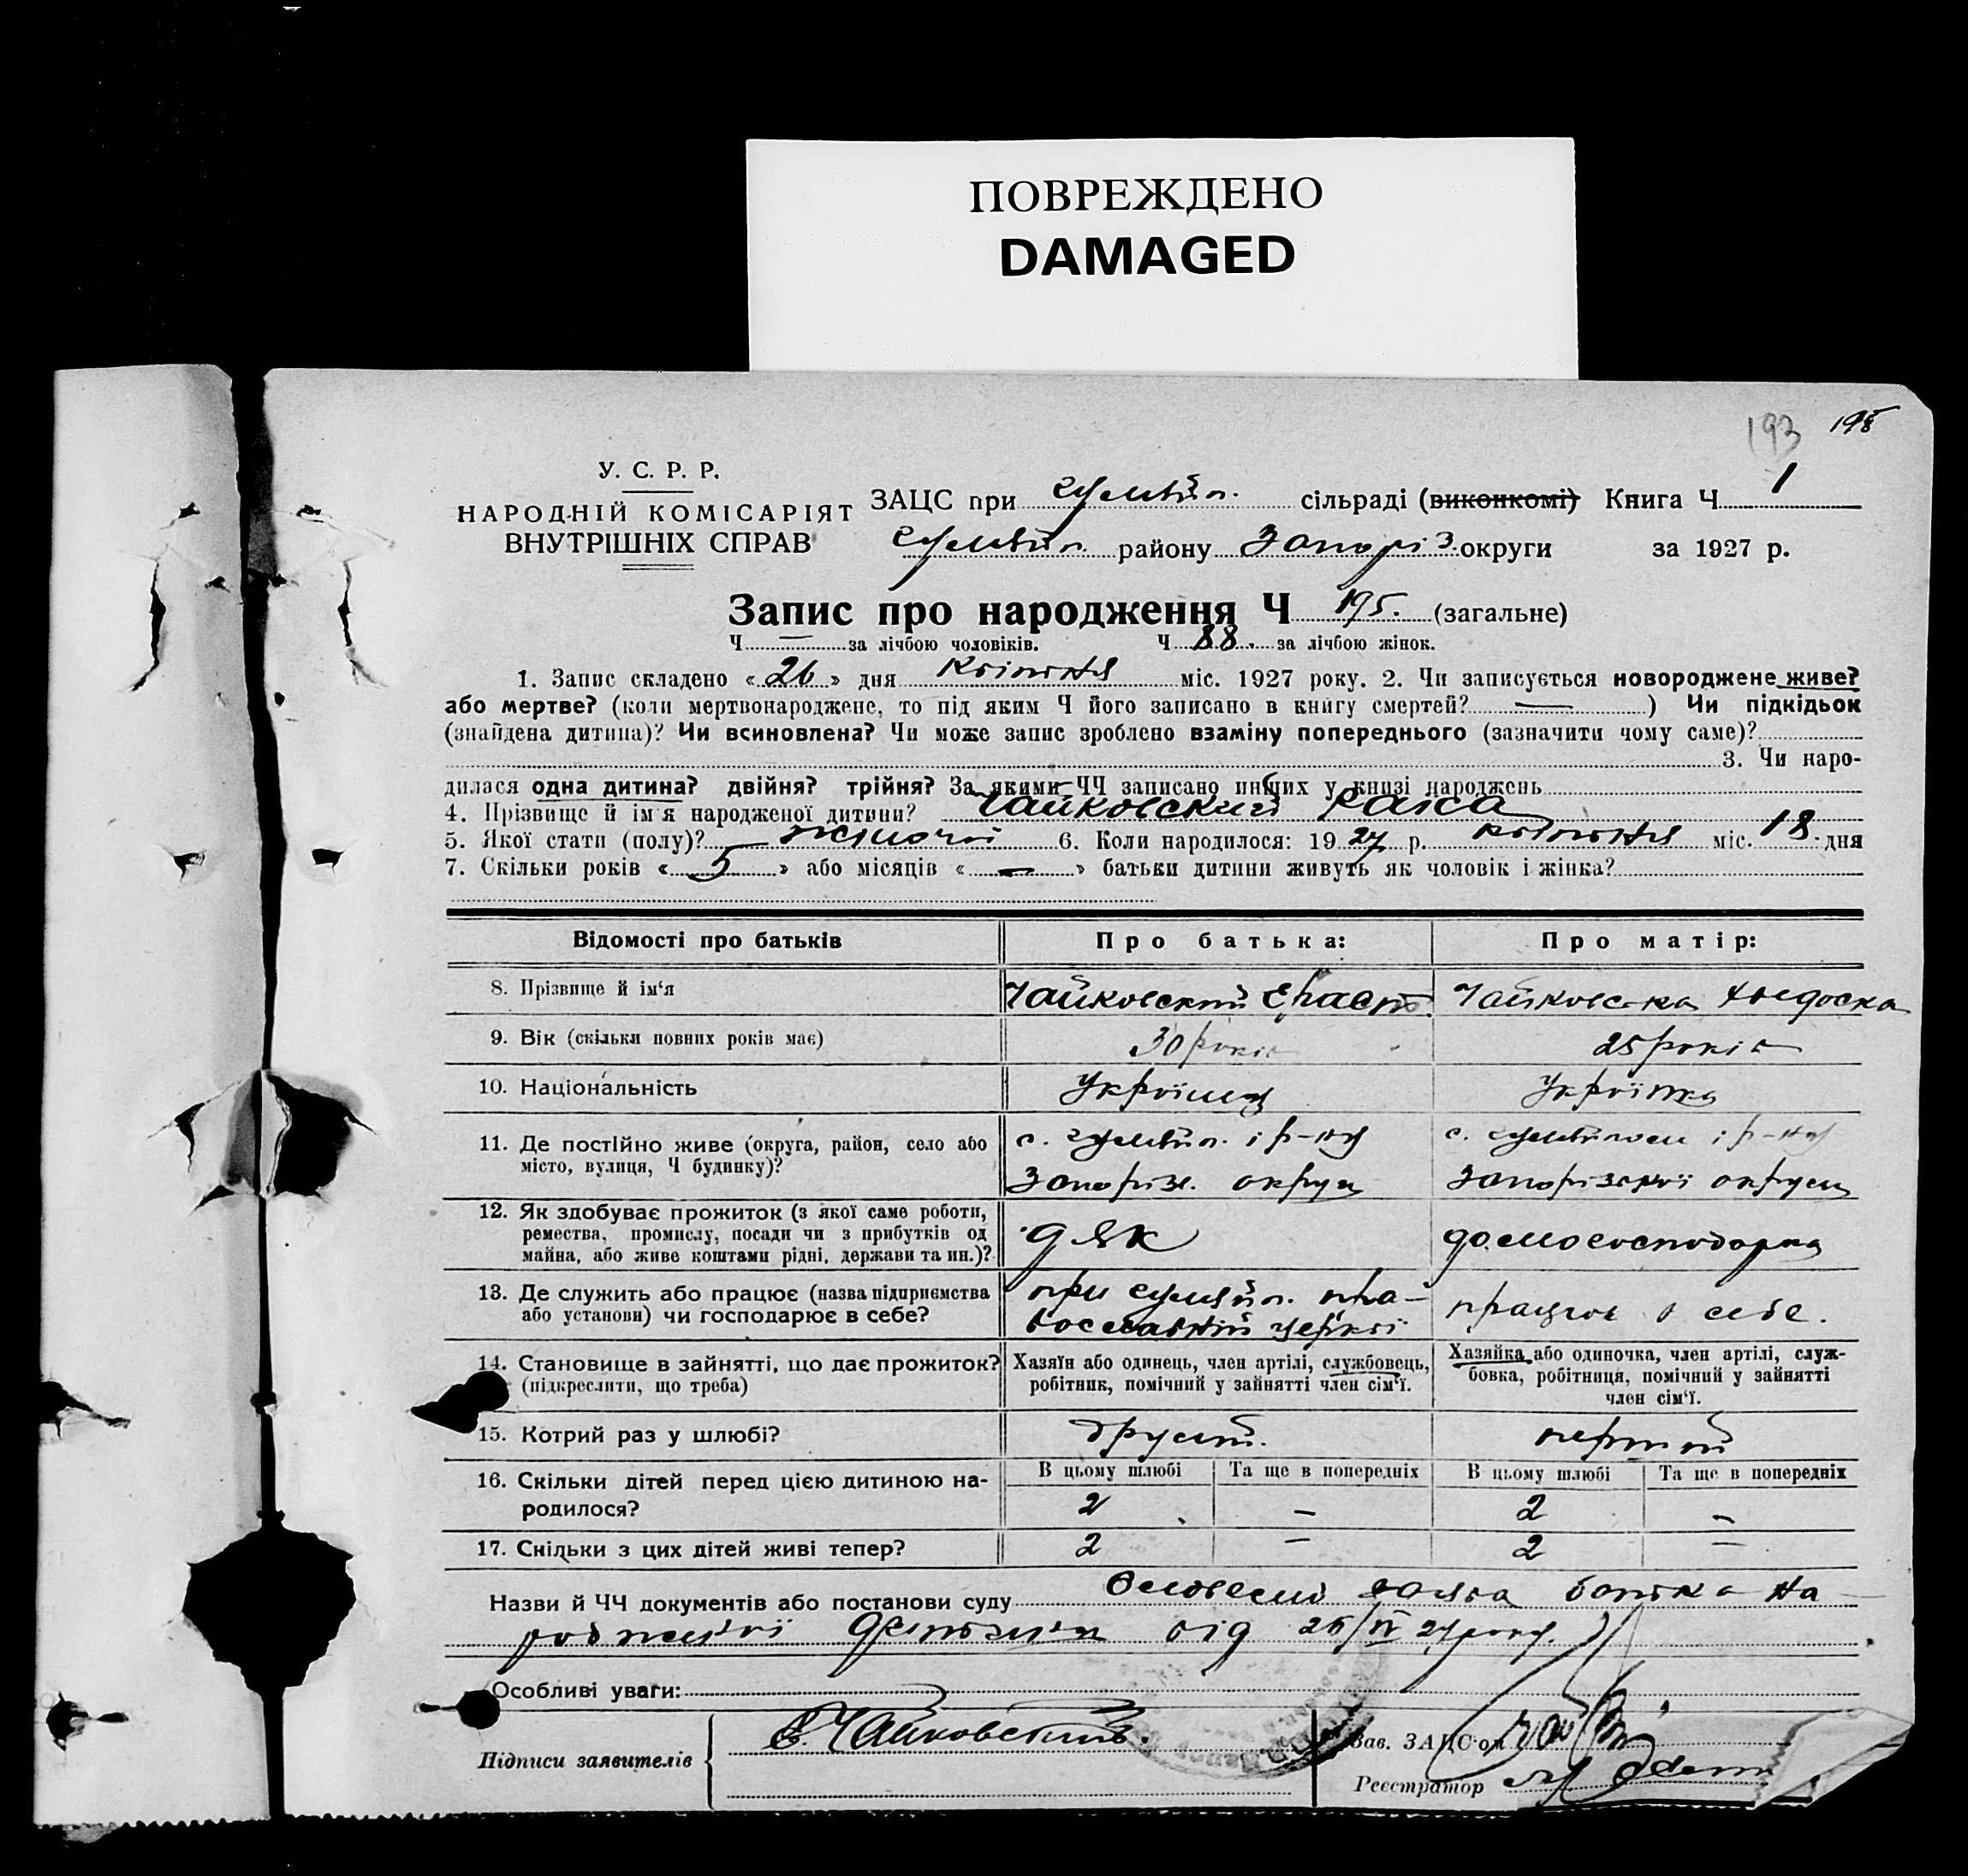 ПОВРЕЖДЕНО
DAMAGED
193 195
У. С. Р. Р.
НАРОДНІЙ КОМІСАРІЯТ
ВНУТРІШНІХ СПРАВ
ЗАЦС при Гуляйп. сільраді (виконкомі) Книга Ч 1
Гуляйп. району Запоріз. округи за 1927 р.
Запис про народження Ч 195. (загальне)
Ч — за лічбою чоловіків. Ч 88. за лічбою жінок.
1. Запис складено « 26 » дня Квітня міс. 1927 року. 2. Чи записується новороджене живе?
або мертве? (коли мертвонароджене, то під яким Ч його записано в книгу смертей? — ) Чи підкідьок
(знайдена дитина)? Чи всиновлена? Чи може запис зроблено взаміну попереднього (зазначити чому саме)?
3. Чи наро-
дилася одна дитина? двійня? трійня? За якими ЧЧ записано инших у книзі народжень
4. Прізвище й ім'я народженої дитини? Чайковский Раїса
5. Якої стати (полу)? жіночої 6. Коли народилося: 1927 р. квітня міс. 18. дня
7. Скільки років « 5 » або місяців « — » батьки дитини живуть як чоловік і жінка?
Відомості про батьків Про батька: Про матір:
8. Прізвище й ім‘я Чайковский Ераст Чайковська Хведоска
9. Вік (скільки повних років має) 30 років 25 років
10. Національність Українец Українка
11. Де постійно живе (округа, район, село або с. Гуляйп. і р-ну с. Гуляйполем і р-ну
місто, вулиця, Ч будинку)? Запоріз. округи Запорізької округи
12. Як здобуває прожиток (з якої саме роботи,
ремества, промислу, посади чи з прибутків од дяк домогосподарка
майна, або живе коштами рідні, держави та ин.)?
13. Де служить або працює (назва підприємства при Гуляйп. пра-
або установи) чи господарює в себе? вославній церкві працює в себе.
14. Становище в зайнятті, що дає прожиток? Хазяїн або одинець, член артілі, службовець, Хазяйка або одиночка, член артілі, служ-
(підкреслити, що треба) робітник, помічний у зайнятті член сім‘ї. бовка, робітниця, помічний у зайнятті
член сім‘ї.
15. Котрий раз у шлюбі? другий. перший
16. Скільки дітей перед цією дитиною на- В цьому шлюбі Та ще в попередніх В цьому шлюбі Та ще в попередніх
родилося? 2 — 2 —
17. Скільки з цих дітей живі тепер? 2 — 2 —
Назви й ЧЧ документів або постанови суду Словесна заява батька на
родженої дитини від 26/IV 27 року.
Особливі уваги:
Підписи заявителів Е. Чайковский.
Зав. ЗАЦС‘ом
Реєстратор